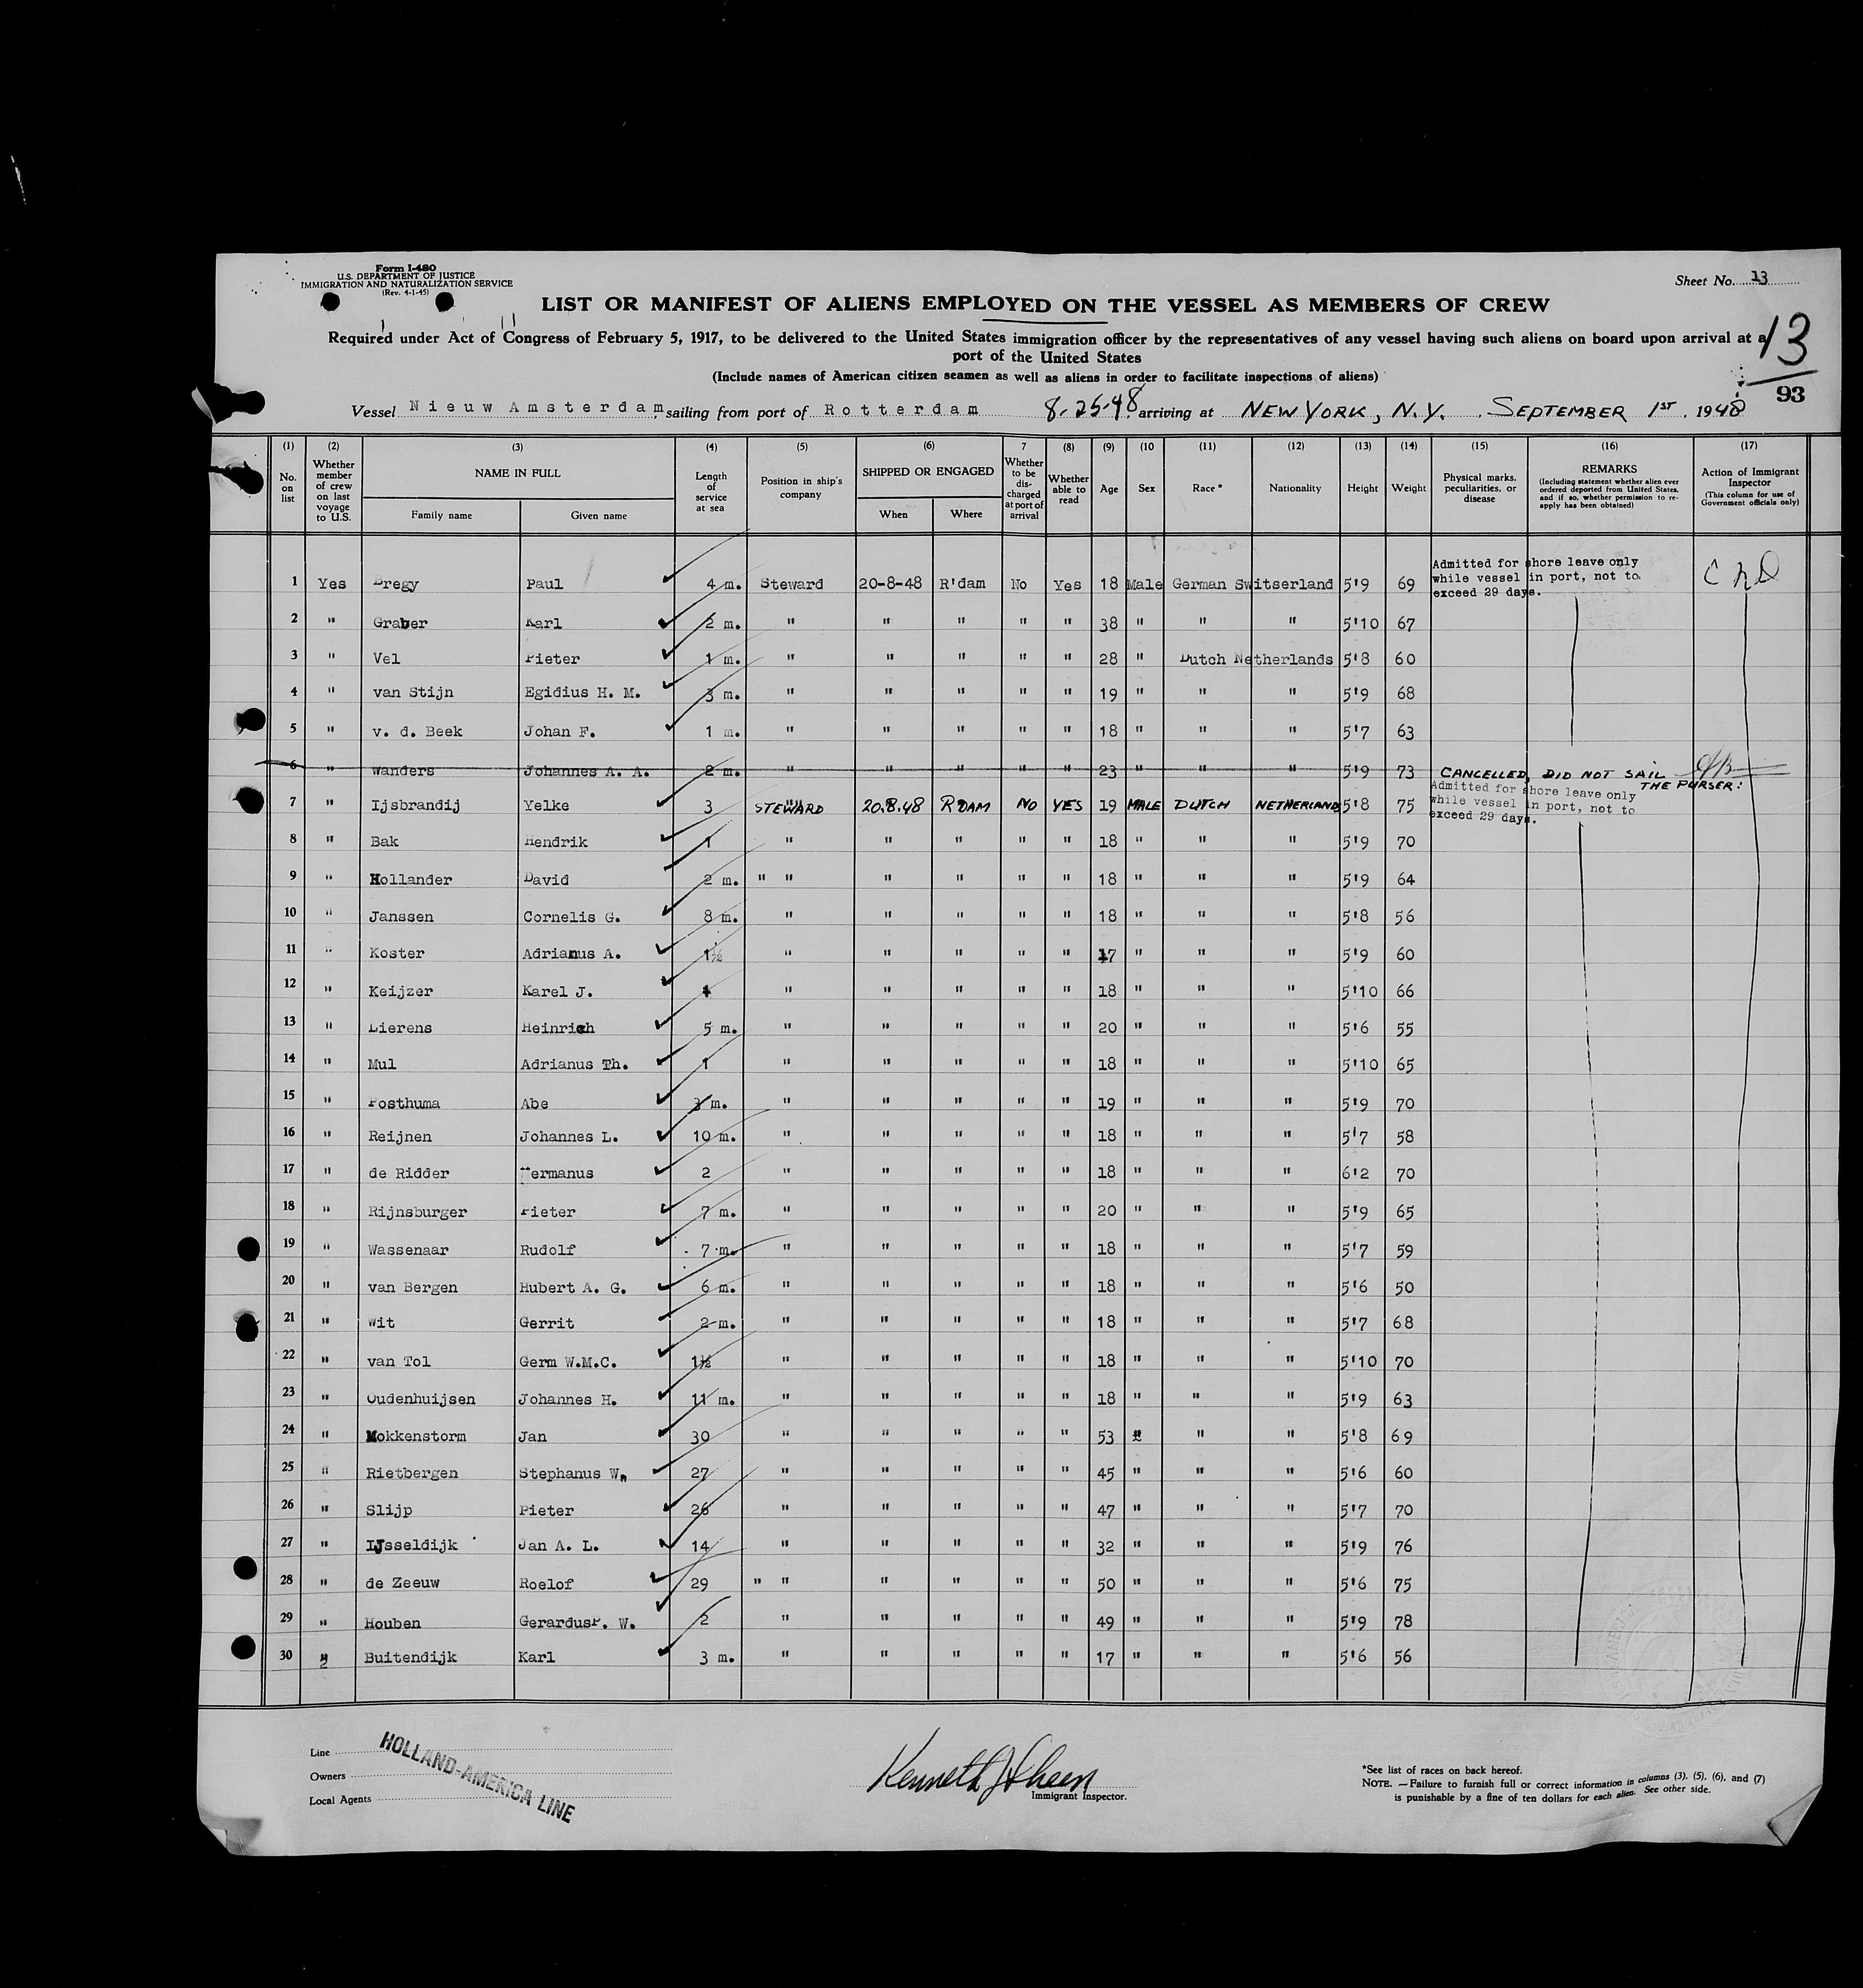 Form I-480
U.S. DEPARTMENT OF JUSTICE
IMMIGRATION AND NATURALIZATION SERVICE
(Rev. 4-1-45)
Sheet No. 13
LIST OR MANIFEST OF ALIENS EMPLOYED ON THE VESSEL AS MEMBERS OF CREW
Required under Act of Congress of February 5, 1917, to be delivered to the United States immigration officer by the representatives of any vessel having such aliens on board upon arrival at a
port of the United States
13
(Include names of American citizen seamen as well as aliens in order to facilitate inspections of aliens)
93
Vessel Nieuw Amsterdam, sailing from port of Rotterdam 8-25-48, arriving at NEW YORK, N.Y. SEPTEMBER 1ST, 1948
(1) (2) (3) (4) (5) (6) 7 (8) (9) (10 (11) (12) (13) (14) (15) (16) (17)
No. on list Whether member of crew on last voyage to U.S. NAME IN FULL Family name Given name Length of service at sea Position in ship's company SHIPPED OR ENGAGED When Where Whether to be discharged at port of arrival Whether able to read Age Sex Race* Nationality Height Weight Physical marks, peculiarities, or disease REMARKS (Including statement whether alien ever ordered deported from United States, and if so, whether permission to reapply has been obtained) Action of Immigrant Inspector (This column for use of Government officials only)
1 Yes Bregy Paul 4 m. Steward 20-8-48 R'dam No Yes 18 Male German Switserland 5'9 69 Admitted for shore leave only while vessel in port, not to exceed 29 days.
2 " Graber Karl 2 m. " " " " " 38 " " " 5'10 67
3 " Vel Pieter 1 m. " " " " " 28 " Dutch Netherlands 5'8 60
4 " van Stijn Egidius H. M. 3 m. " " " " " 19 " " " 5'9 68
5 " v. d. Beek Johan F. 1 m. " " " " " 18 " " " 5'7 63
6 " Wanders Johannes A. A. 2 m. " " " " " 23 " " " 5'9 73 CANCELLED, DID NOT SAIL
THE PURSER:
7 " Ijsbrandij Yelke 3 STEWARD 20.8.48 R'DAM NO YES 19 MALE DUTCH NETHERLAND 5'8 75 Admitted for shore leave only while vessel in port, not to exceed 29 days.
8 " Bak Hendrik 1 " " " " " 18 " " " 5'9 70
9 " Hollander David 2 m. " " " " " " 18 " " " 5'9 64
10 " Janssen Cornelis G. 8 m. " " " " " 18 " " " 5'8 56
11 " Koster Adrianus A. 1½ " " " " " 17 " " " 5'9 60
12 " Keijzer Karel J. " " " " " 18 " " " 5'10 66
13 " Lierens Heinrich 5 m. " " " " " 20 " " " 5'6 55
14 " Mul Adrianus Th. 1 " " " " " 18 " " " 5'10 65
15 " Posthuma Abe 3 m. " " " " " 19 " " " 5'9 70
16 " Reijnen Johannes L. 10 m. " " " " " 18 " " " 5'7 58
17 " de Ridder Hermanus 2 " " " " " 18 " " " 6'2 70
18 " Rijnsburger Pieter 7 m. " " " " " 20 " " " 5'9 65
19 " Wassenaar Rudolf 7 m. " " " " " 18 " " " 5'7 59
20 " van Bergen Hubert A. G. 6 m. " " " " " 18 " " " 5'6 50
21 " Wit Gerrit 2 m. " " " " " 18 " " " 5'7 68
22 " van Tol Germ W.M.C. 1½ " " " " " 18 " " " 5'10 70
23 " Oudenhuijsen Johannes H. 11 m. " " " " " 18 " " " 5'9 63
24 " Mokkenstorm Jan 30 " " " " " 53 " " " 5'8 69
25 " Rietbergen Stephanus W. 27 " " " " " 45 " " " 5'6 60
26 " Slijp Pieter 26 " " " " " 47 " " " 5'7 70
27 " IJsseldijk Jan A. L. 14 " " " " " 32 " " " 5'9 76
28 " de Zeeuw Roelof 29 " " " " " " 50 " " " 5'6 75
29 " Houben Gerardus P. W. 2 " " " " " 49 " " " 5'9 78
30 " Buitendijk Karl 3 m. " " " " " 17 " " " 5'6 56
Line
Owners
Local Agents
HOLLAND-AMERICA LINE
Immigrant Inspector.
*See list of races on back hereof.
NOTE. —Failure to furnish full or correct information in columns (3), (5), (6), and (7)
is punishable by a fine of ten dollars for each alien. See other side.